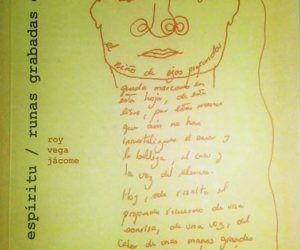 espíritu / runas grabadas
roy
vega
jácome
el niño de ojos profundos
queda marcado en
esta hoja, de este
libro, por estas manos
que aún no han
el amor y
la belleza, el caos y
la voz del silencio.
Hoy, solo resalto el
profundo de una
sonrisa, de una voz, del
calor de unas manos grandes